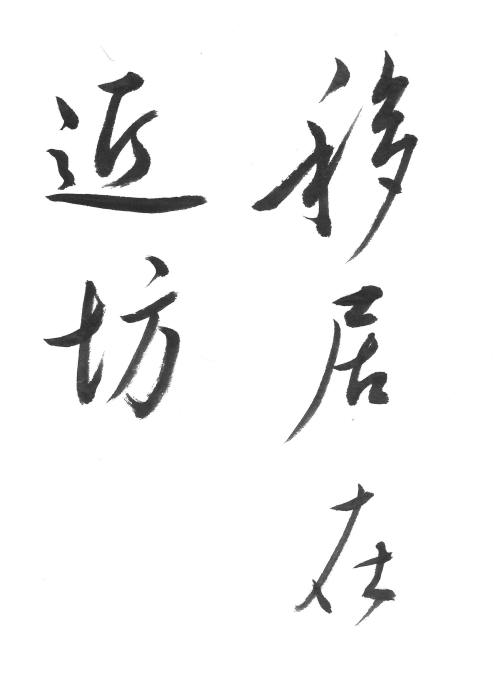 移居在
近坊